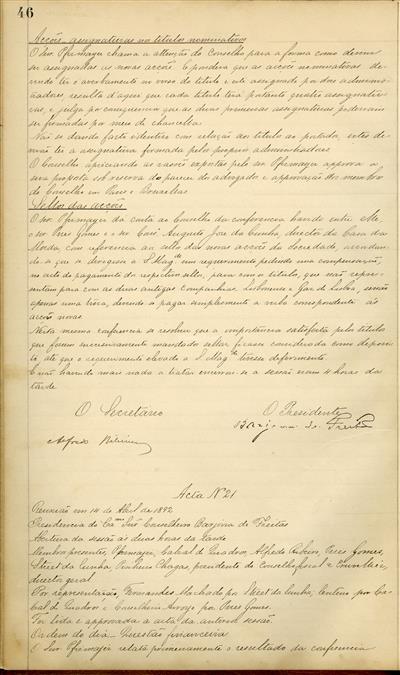 46
Acções, assignaturas nos titulos nominativos
O Snr. Pfirmayer chama a attenção do Conselho para a forma como devem
ser assignadas as novas acções. E pondera que as acções nominativas de-
vendo ter o averbamento no verso do titulo e este assignado por dois adminis-
tradores, resulta d'aqui que cada titulo terá portanto quatro assignatu-
ras, e julga por conseguinte que as duas primeiras assignaturas poderiam
ser firmadas por meio de chancella.
Não se dando facto identico com relação aos titulos ao portador, estes de-
verão ter a assignatura firmada pelos proprios administradores
O Conselho apreciando as rasões expostas pelo snr. Pfirmayer approva a
sua proposta sob reserva do parecer do advogado e approvação dos membros
do Conselho em Paris e Bruxellas
Sellos das acções
O snr. Pfirmayer dá conta ao Conselho da conferencia havida entre elle,
o snr. Pires Gomes e o snr. Cons.º Augusto José da Cunha, director da Casa da
Moeda, com referencia ao sello das novas acções da Sociedade, accordan-
do a que se dirigisse a S. Mag.de um requerimento pedindo uma compensação,
no acto do pagamento do respectivo sello, para com os titulos, que não repre-
sentam para com as duas antigas companhias Lisbonense e Gaz de Lisboa, senão
apenas uma troca, devendo-se pagar simplesmente o sello correspondente ás
acções novas
N'esta mesma conferencia se resolveu que a importancia satisfeita pelos titulos
que foram successivamente mandados sellar ficasse considerada como deposi-
to até que o requerimento elevado a S. Mag.de tivesse deferimento.
E não havendo mais nada a tratar encerrou-se a sessão eram 4 horas da
tarde
O Secretario
O Presidente
Alfredo Ribeiro
Barjona de Freitas
Acta Nº 21
Reunião em 14 de Abril de 1892
Presidencia do Ex.mo Snr. Conselheiro Barjona de Freitas
Abertura da sessão ás duas horas da tarde
Membros presentes, Pfirmayer, Cabral de Quadros, Alfredo Ribeiro, Pires Gomes,
Street da Cunha, Pinheiro Chagas, presidente do Conselho fiscal e
director geral
Por representação, Fernandes Machado por Street da Cunha, Centeno por Ca-
bral de Quadros e Conselheiro Arroyo por Pires Gomes.
Foi lida e approvada a acta da anterior sessão.
Ordem do dia — Questão financeira
O Snr Pfirmayer relata primeiramente o resultado da conferencia